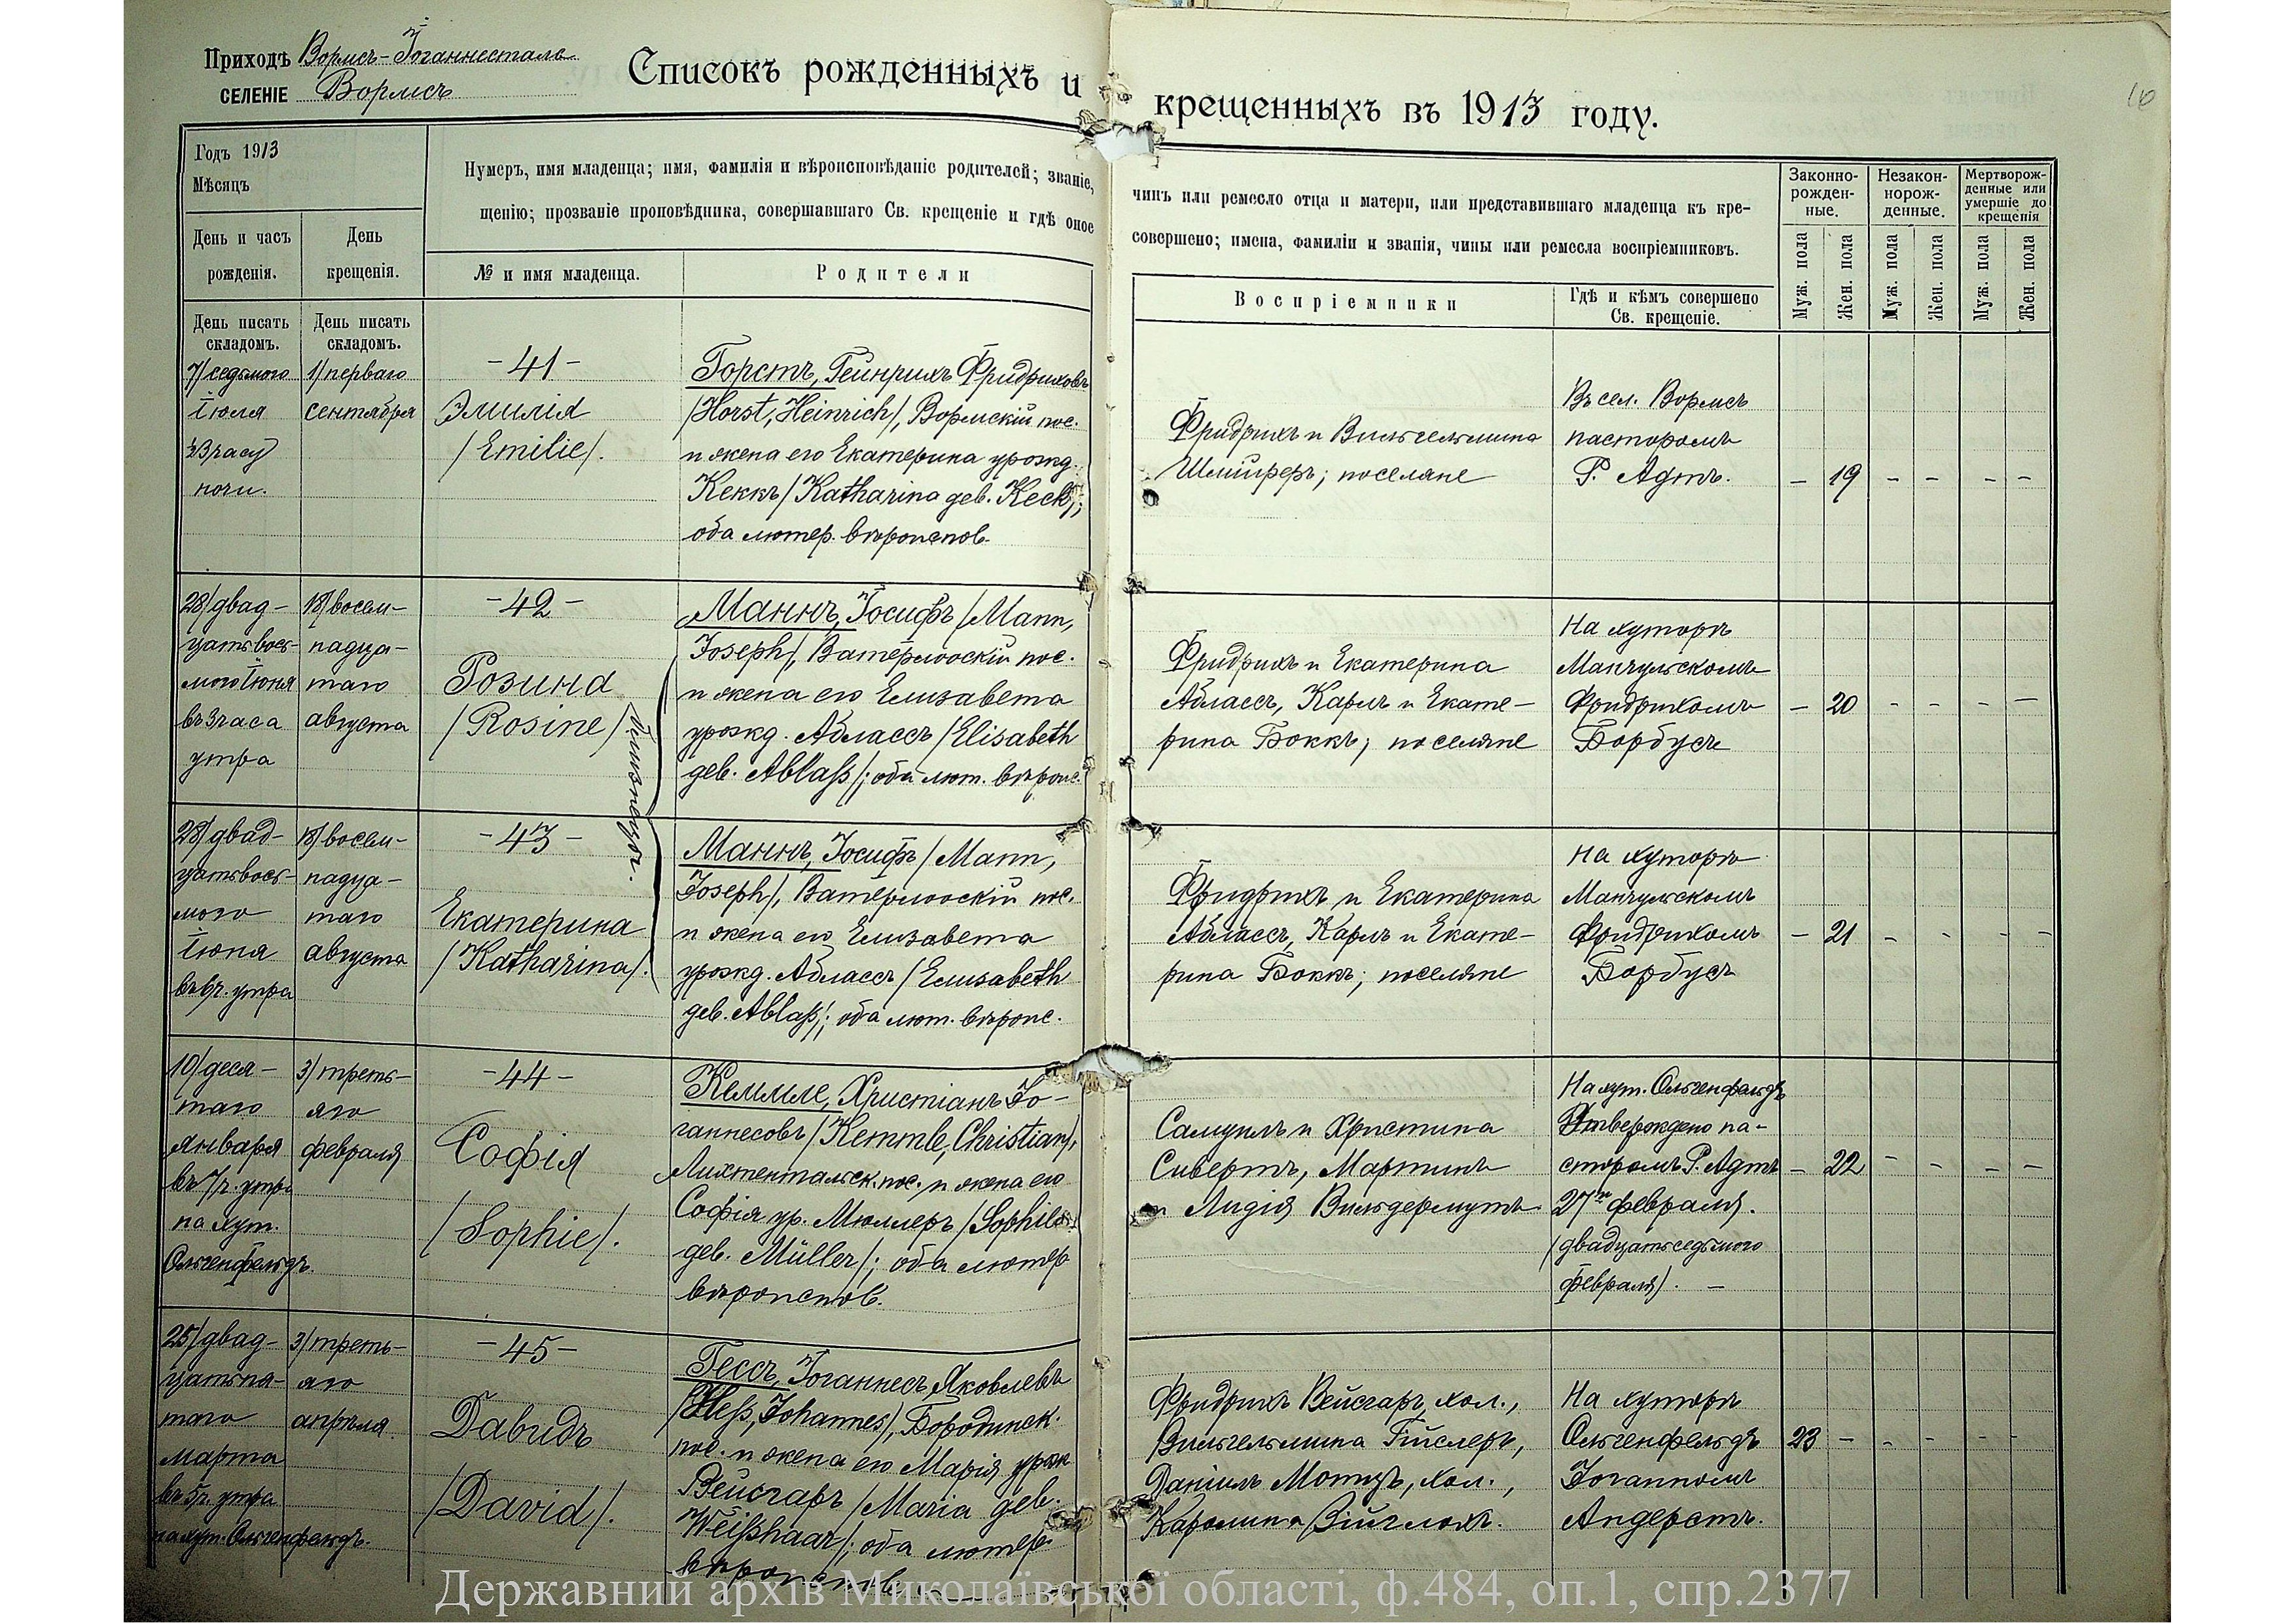 Приходъ Вормсъ-Іоганнесталь
СЕЛЕНІЕ Вормсъ
Списокъ рожденныхъ и крещенныхъ въ 1913 году.
10
Годъ 1913
Мѣсяцъ
День и часъ рожденія.
День крещенія.
Нумеръ, имя младенца; имя, фамилія и вѣроисповѣданіе родителей; званіе, чинъ или ремесло отца и матери, или представившаго младенца къ кре-
щенію; прозваніе проповѣдника, совершавшаго Св. крещеніе и гдѣ оное совершено; имена, фамиліи и званія, чины или ремесла воспріемниковъ.
№ и имя младенца.
Родители
Воспріемники
Гдѣ и кѣмъ совершено
Св. крещеніе.
Законно-
рожден-
ные.
Незакон-
норож-
денные.
Мертворож-
денные или
умершіе до
крещенія
Муж. пола
Жен. пола
Муж. пола
Жен. пола
Муж. пола
Жен. пола
День писать
складомъ.
День писать
складомъ.
7/седьмого
Іюля
ночи.
1/перваго
сентября
-41-
Эмилія
/Emilie/.
Горстъ, Гейнрихъ Фридриховъ
/Horst, Heinrich/, Вормскій пос.
и жена его Екатерина урожд.
Кеккъ /Katharina geb. Keck/;
оба лютер. вѣроиспов.
Фридрихъ и Вильгельмина
поселяне
Въ сел. Вормсъ
пасторомъ
Р. Адтъ.
– 19 – – – –
28/двад-
цатьвось-
мого Іюня
въ 3 часа
утра
18/восем-
надца-
таго
августа
-42-
Розина
/Rosine/
близнецы.
Маннъ, Іосифъ /Mann,
Joseph/, Ватерлооскій пос.
и жена его Елизавета
урожд. Аблассъ /Elisabeth
geb. Ablaß/; оба лют. вѣроис.
Фридрихъ и Екатерина
Аблассъ, Карлъ и Екате-
рина Боккъ; поселяне
На хуторѣ
Манчульскомъ
Фридрихомъ
Борбусъ
– 20 – – – –
28/двад-
цатьвось-
мого
Іюня
въ 6 ч. утра
18/восем-
надца-
таго
августа
-43-
Екатерина
/Katharina/.
Маннъ, Іосифъ /Mann,
Joseph/, Ватерлооскій пос.
и жена его Елизавета
урожд. Аблассъ /Елisabeth
geb. Ablaß/; оба лют. вѣроис.
Фридрихъ и Екатерина
Аблассъ, Карлъ и Екате-
рина Боккъ; поселяне
На хуторѣ
Манчульскомъ
Фридрихомъ
Борбусъ
– 21 – – – –
10/деся-
таго
января
въ 7 ч. утра
на хут.
Ольгенфельдъ.
3/треть-
яго
февраля
-44-
Софія
/Sophie/.
Кеммле, Христіанъ Іо-
ганнесовъ /Kemmle, Christian/,
Лихтентальск. пос. и жена его
Софія ур. Мюллеръ /Sophie
geb. Müller/; оба лютер
вѣроиспов.
Самуилъ и Христина
Сивертъ, Мартинъ
и Лидія Вильдермутъ.
На хут. Ольгенфельдъ
Утверждено па-
сторомъ Р. Адтъ
27го февраля.
/двадцатьседьмого
февраля/. –
– 22 – – – –
25/двад-
цатьпя-
таго
марта
въ 5 ч. утра
на хут. Ольгенфельдъ.
3/треть-
яго
апрѣля
-45-
Давидъ
/David/.
Гессъ, Іоганнесъ Яковлевъ
/Heß, Johannes/, Бородинск.
пос. и жена его Марія урож
Вейсгаръ /Maria geb.
Weißhaar/; оба лютер.
вѣроиспов.
Фридрихъ Вейсгаръ, хол.,
Вильгельмина Гислеръ,
Даніилъ Мотцъ, хол.,
Каролина
На хуторѣ
Ольгенфельдъ
Іоганномъ
Андерстъ.
23 – – – – –
Державний архів Миколаївської області, ф.484, оп.1, спр.2377